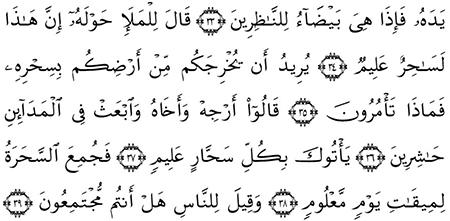 يَدَهُۥ فَإِذَا هِىَ بَيْضَآءُ لِلنَّـٰظِرِينَ ٣٣ قَالَ لِلْمَلَإِ حَوْلَهُۥٓ إِنَّ هَـٰذَا
لَسَـٰحِرٌ عَلِيمٌ ٣٤ يُرِيدُ أَن يُخْرِجَكُم مِّنْ أَرْضِكُم بِسِحْرِهِۦ
فَمَاذَا تَأْمُرُونَ ٣٥ قَالُوٓا۟ أَرْجِهْ وَأَخَاهُ وَٱبْعَثْ فِى ٱلْمَدَآئِنِ
حَـٰشِرِينَ ٣٦ يَأْتُوكَ بِكُلِّ سَحَّارٍ عَلِيمٍ ٣٧ فَجُمِعَ ٱلسَّحَرَةُ
لِمِيقَـٰتِ يَوْمٍ مَّعْلُومٍ ٣٨ وَقِيلَ لِلنَّاسِ هَلْ أَنتُم مُّجْتَمِعُونَ ٣٩